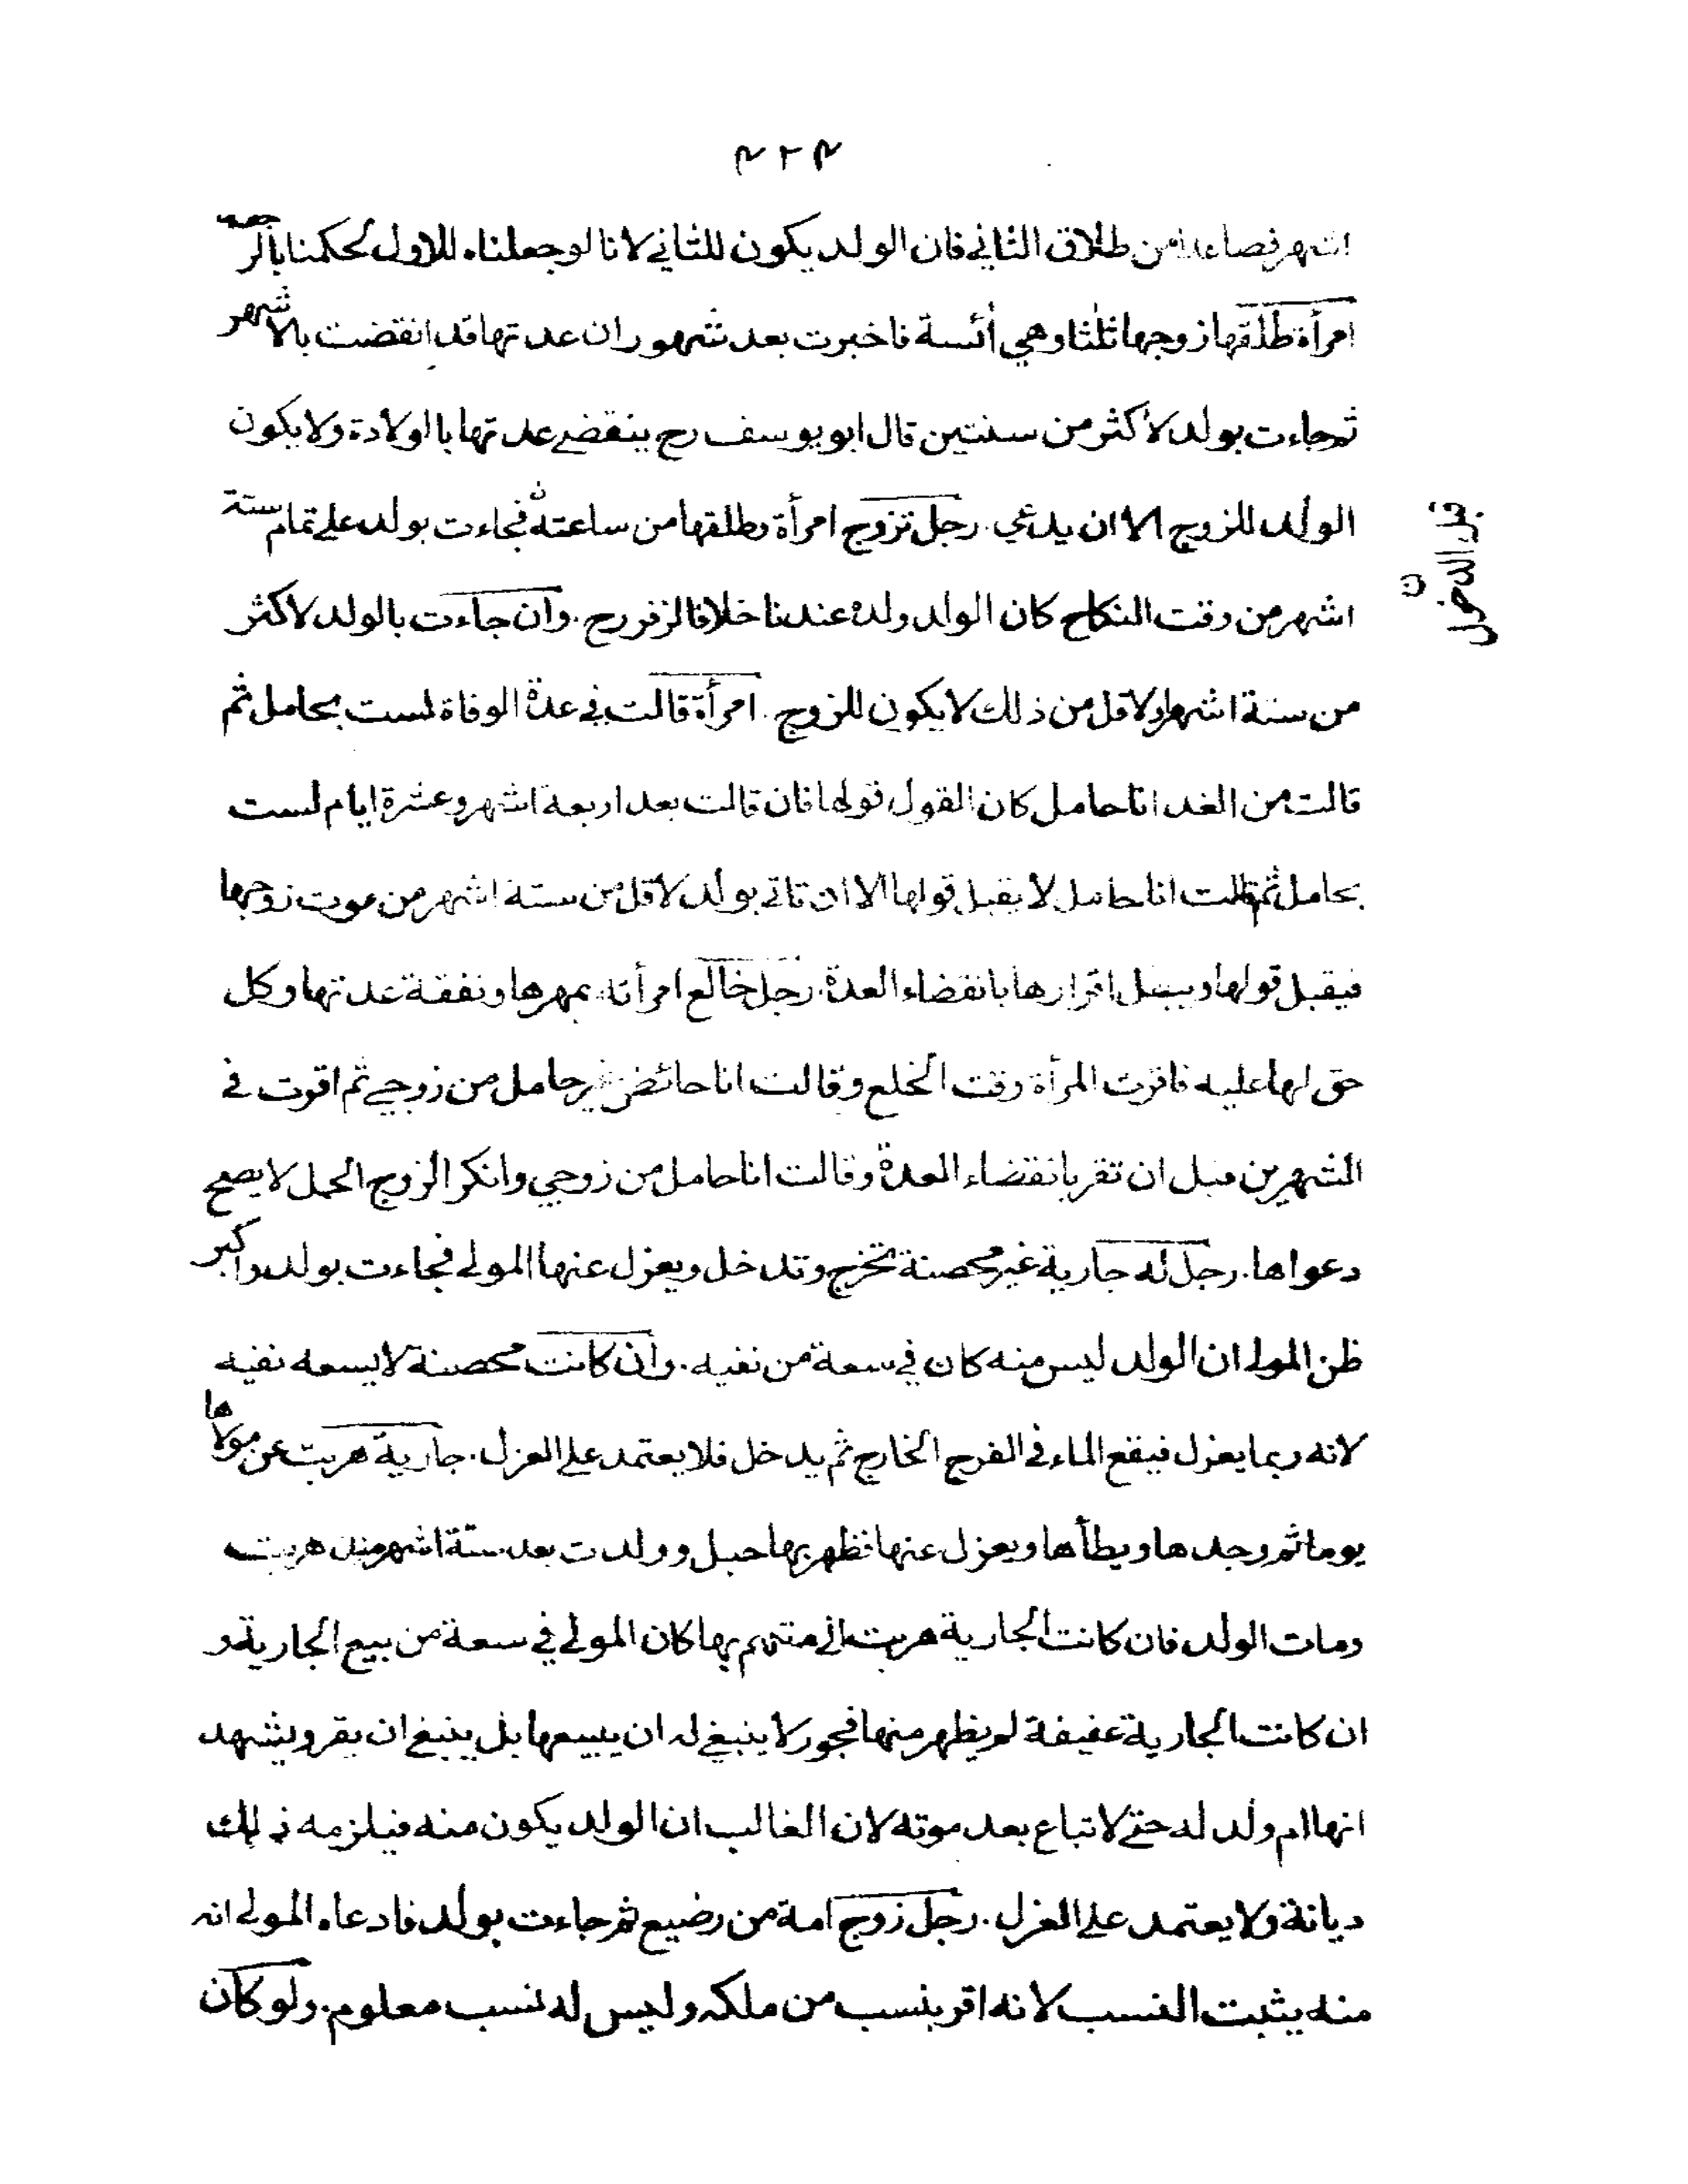 ۴۲۴
اشهر فصاعدا من طلاق الثاني فان الولد يكون للثاني لانا لو جعلناه للاول لحكمنا بالرجعة
امرأة طلقها زوجها ثلثا وهي أئسة فاخبرت بعد شهور ان عدتها قد انقضت بالاشهر
ثم جاءت بولد لاكثر من سنتين قال ابو يوسف رح ينقضي عدتها بالولادة ولا يكون
الولد للزوج الا ان يدعي. رجل تزوج امرأة وطلقها من ساعته فجاءت بولد على تمام ستة
اشهر من وقت النكاح كان الولد ولده عندنا خلافا لزفر رح. وان جاءت بالولد لاكثر
من ستة اشهر او لاقل من ذلك لا يكون للزوج. امرأة قالت في عدة الوفاة لست بحامل ثم
قالت من الغد انا حامل كان القول قولها فان قالت بعد اربعة اشهر وعشرة ايام لست
بحامل ثم قالت انا حامل لا يقبل قولها الا ان تاتي بولد لاقل من ستة اشهر من موت زوجها
فيقبل قولها ويبطل اقرارها بانقضاء العدة. رجل خالع امرأته بمهرها ونفقة عدتها وكل
حق لها عليه فاقرت المرأة وقت الخلع وقالت انا حائض غير حامل من زوجي ثم اقرت في
الشهرين قبل ان تقر بانقضاء العدة وقالت انا حامل من زوجي وانكر الزوج الحمل لا يصح
دعواها. رجل له جارية غير محصنة تخرج وتدخل ويعزل عنها المولى فجاءت بولد واكبر
ظن المولى ان الولد ليس منه كان في سعة من نفيه. وان كانت محصنة لا يسعه نفيه
لانه ربما يعزل فيقع الماء في الفرج الخارج ثم يدخل فلا يعتمد على العزل. جارية هربت عن مولاها
يوما ثم وجدها ويطأها ويعزل عنها فظهر بها حبل وولدت بعد ستة اشهر منذ هربت
ومات الولد فان كانت الجارية هربت الى متهم بها كان المولى في سعة من بيع الجارية و
ان كانت الجارية عفيفة لم يظهر منها فجور لا ينبغي له ان يبيعها بل ينبغي ان يقر ويشهد
انها ام ولد له حتى لا تباع بعد موته لان الغالب ان الولد يكون منه فيلزمه ذلك
ديانة ولا يعتمد على العزل. رجل زوج امة من رضيع ثم جاءت بولد فادعاه المولى انه
منه يثبت النسب لانه اقر بنسب من ملكه وليس له نسب معلوم. ولو كان